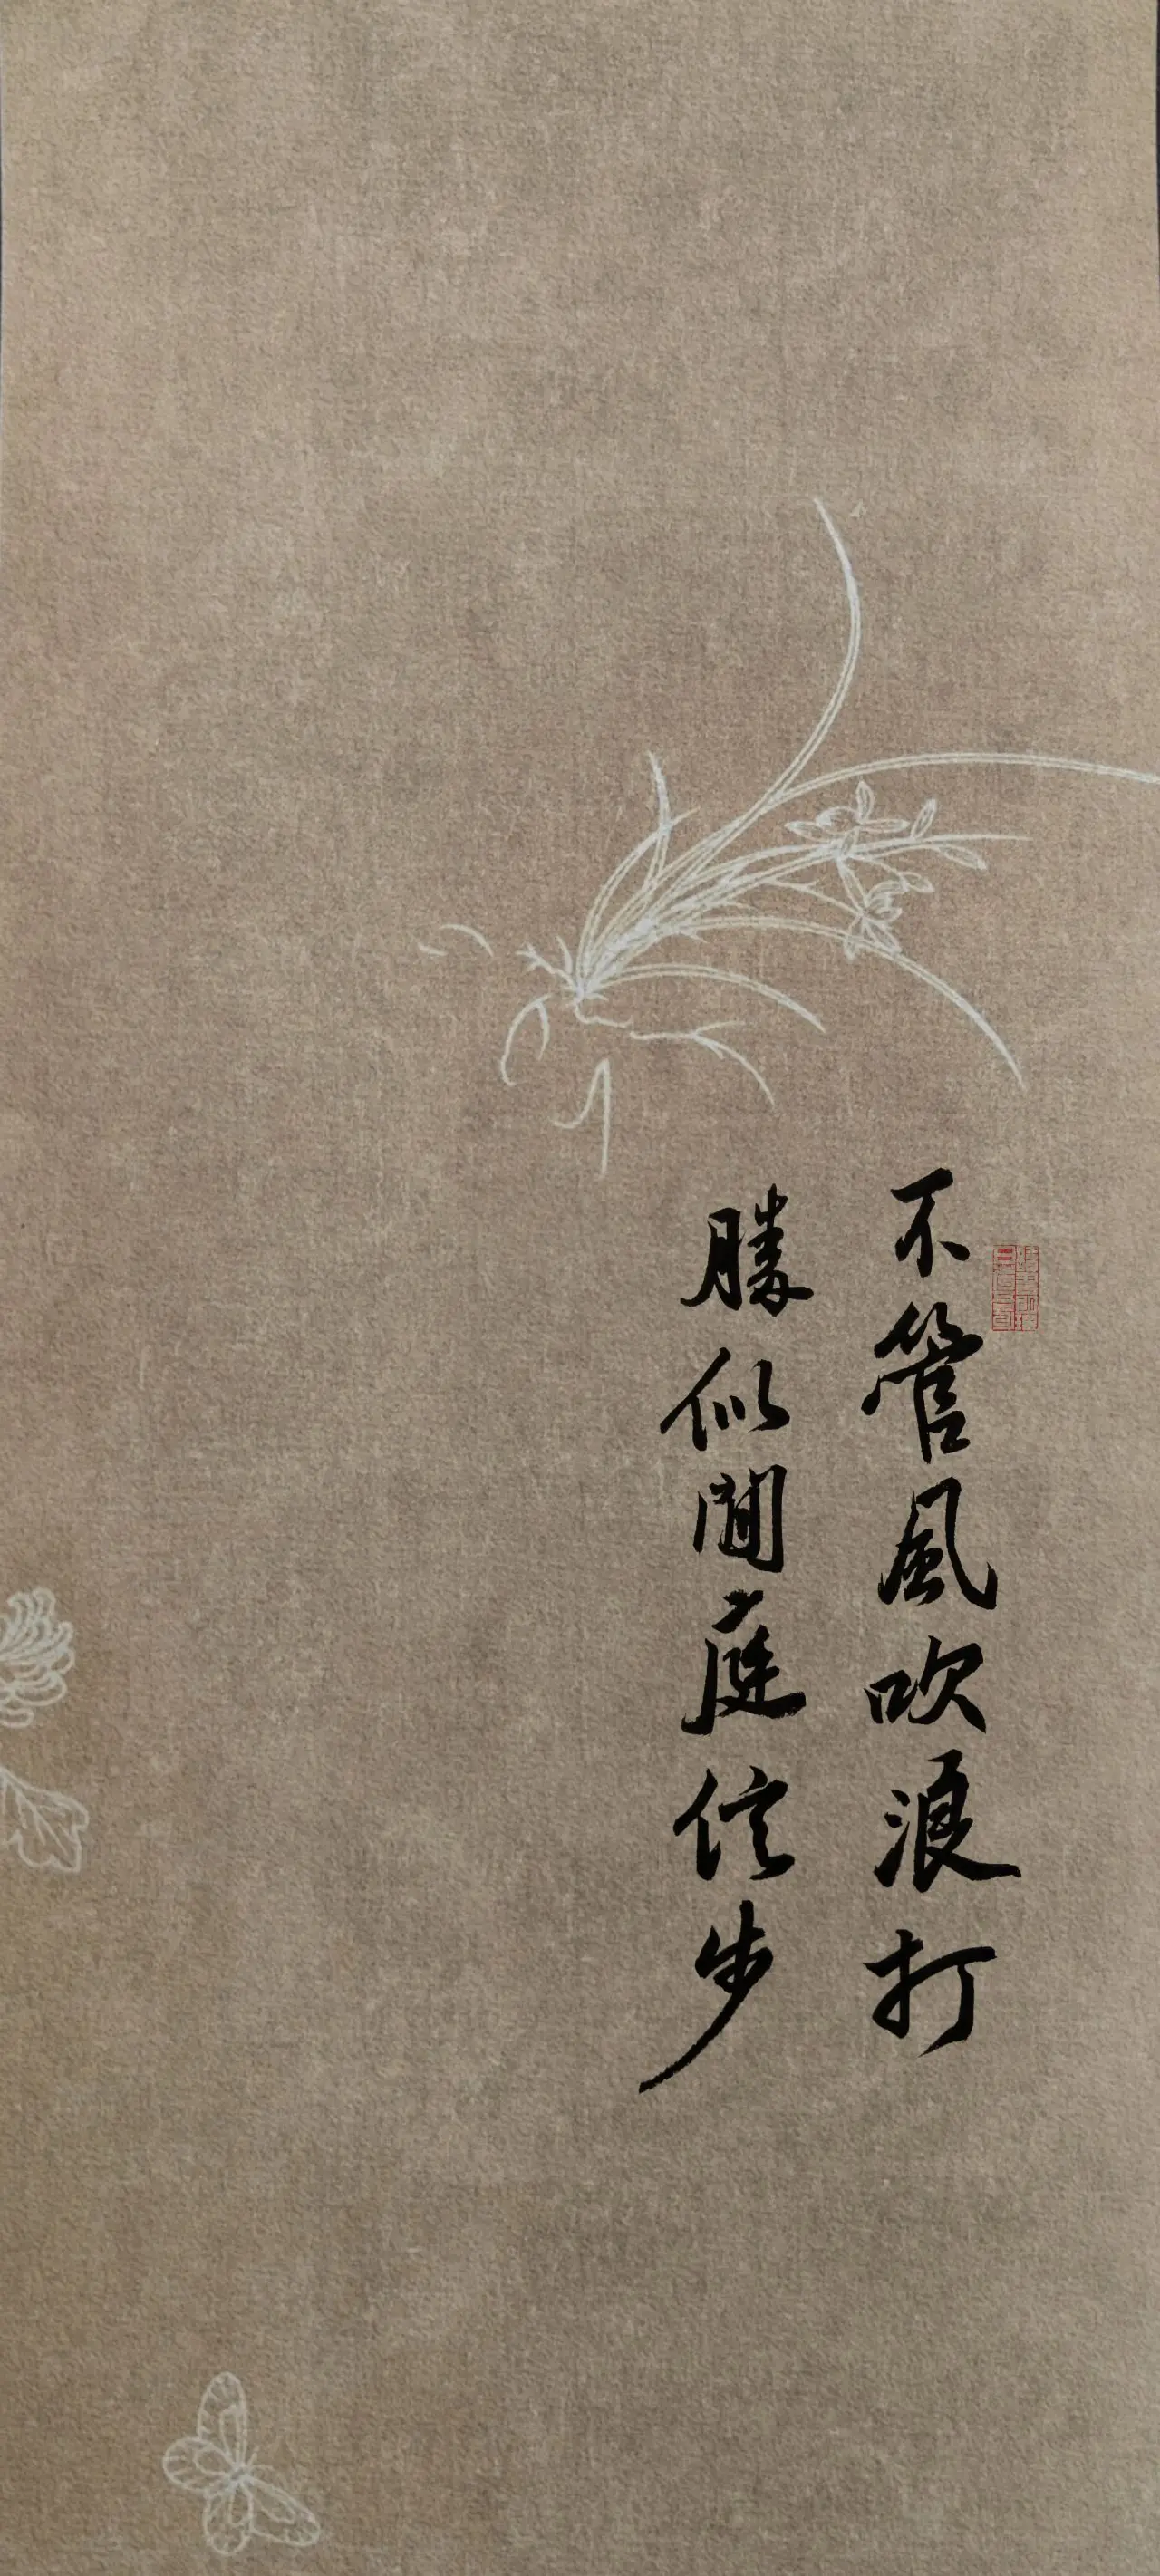 不管風吹浪打
勝似閒庭信步